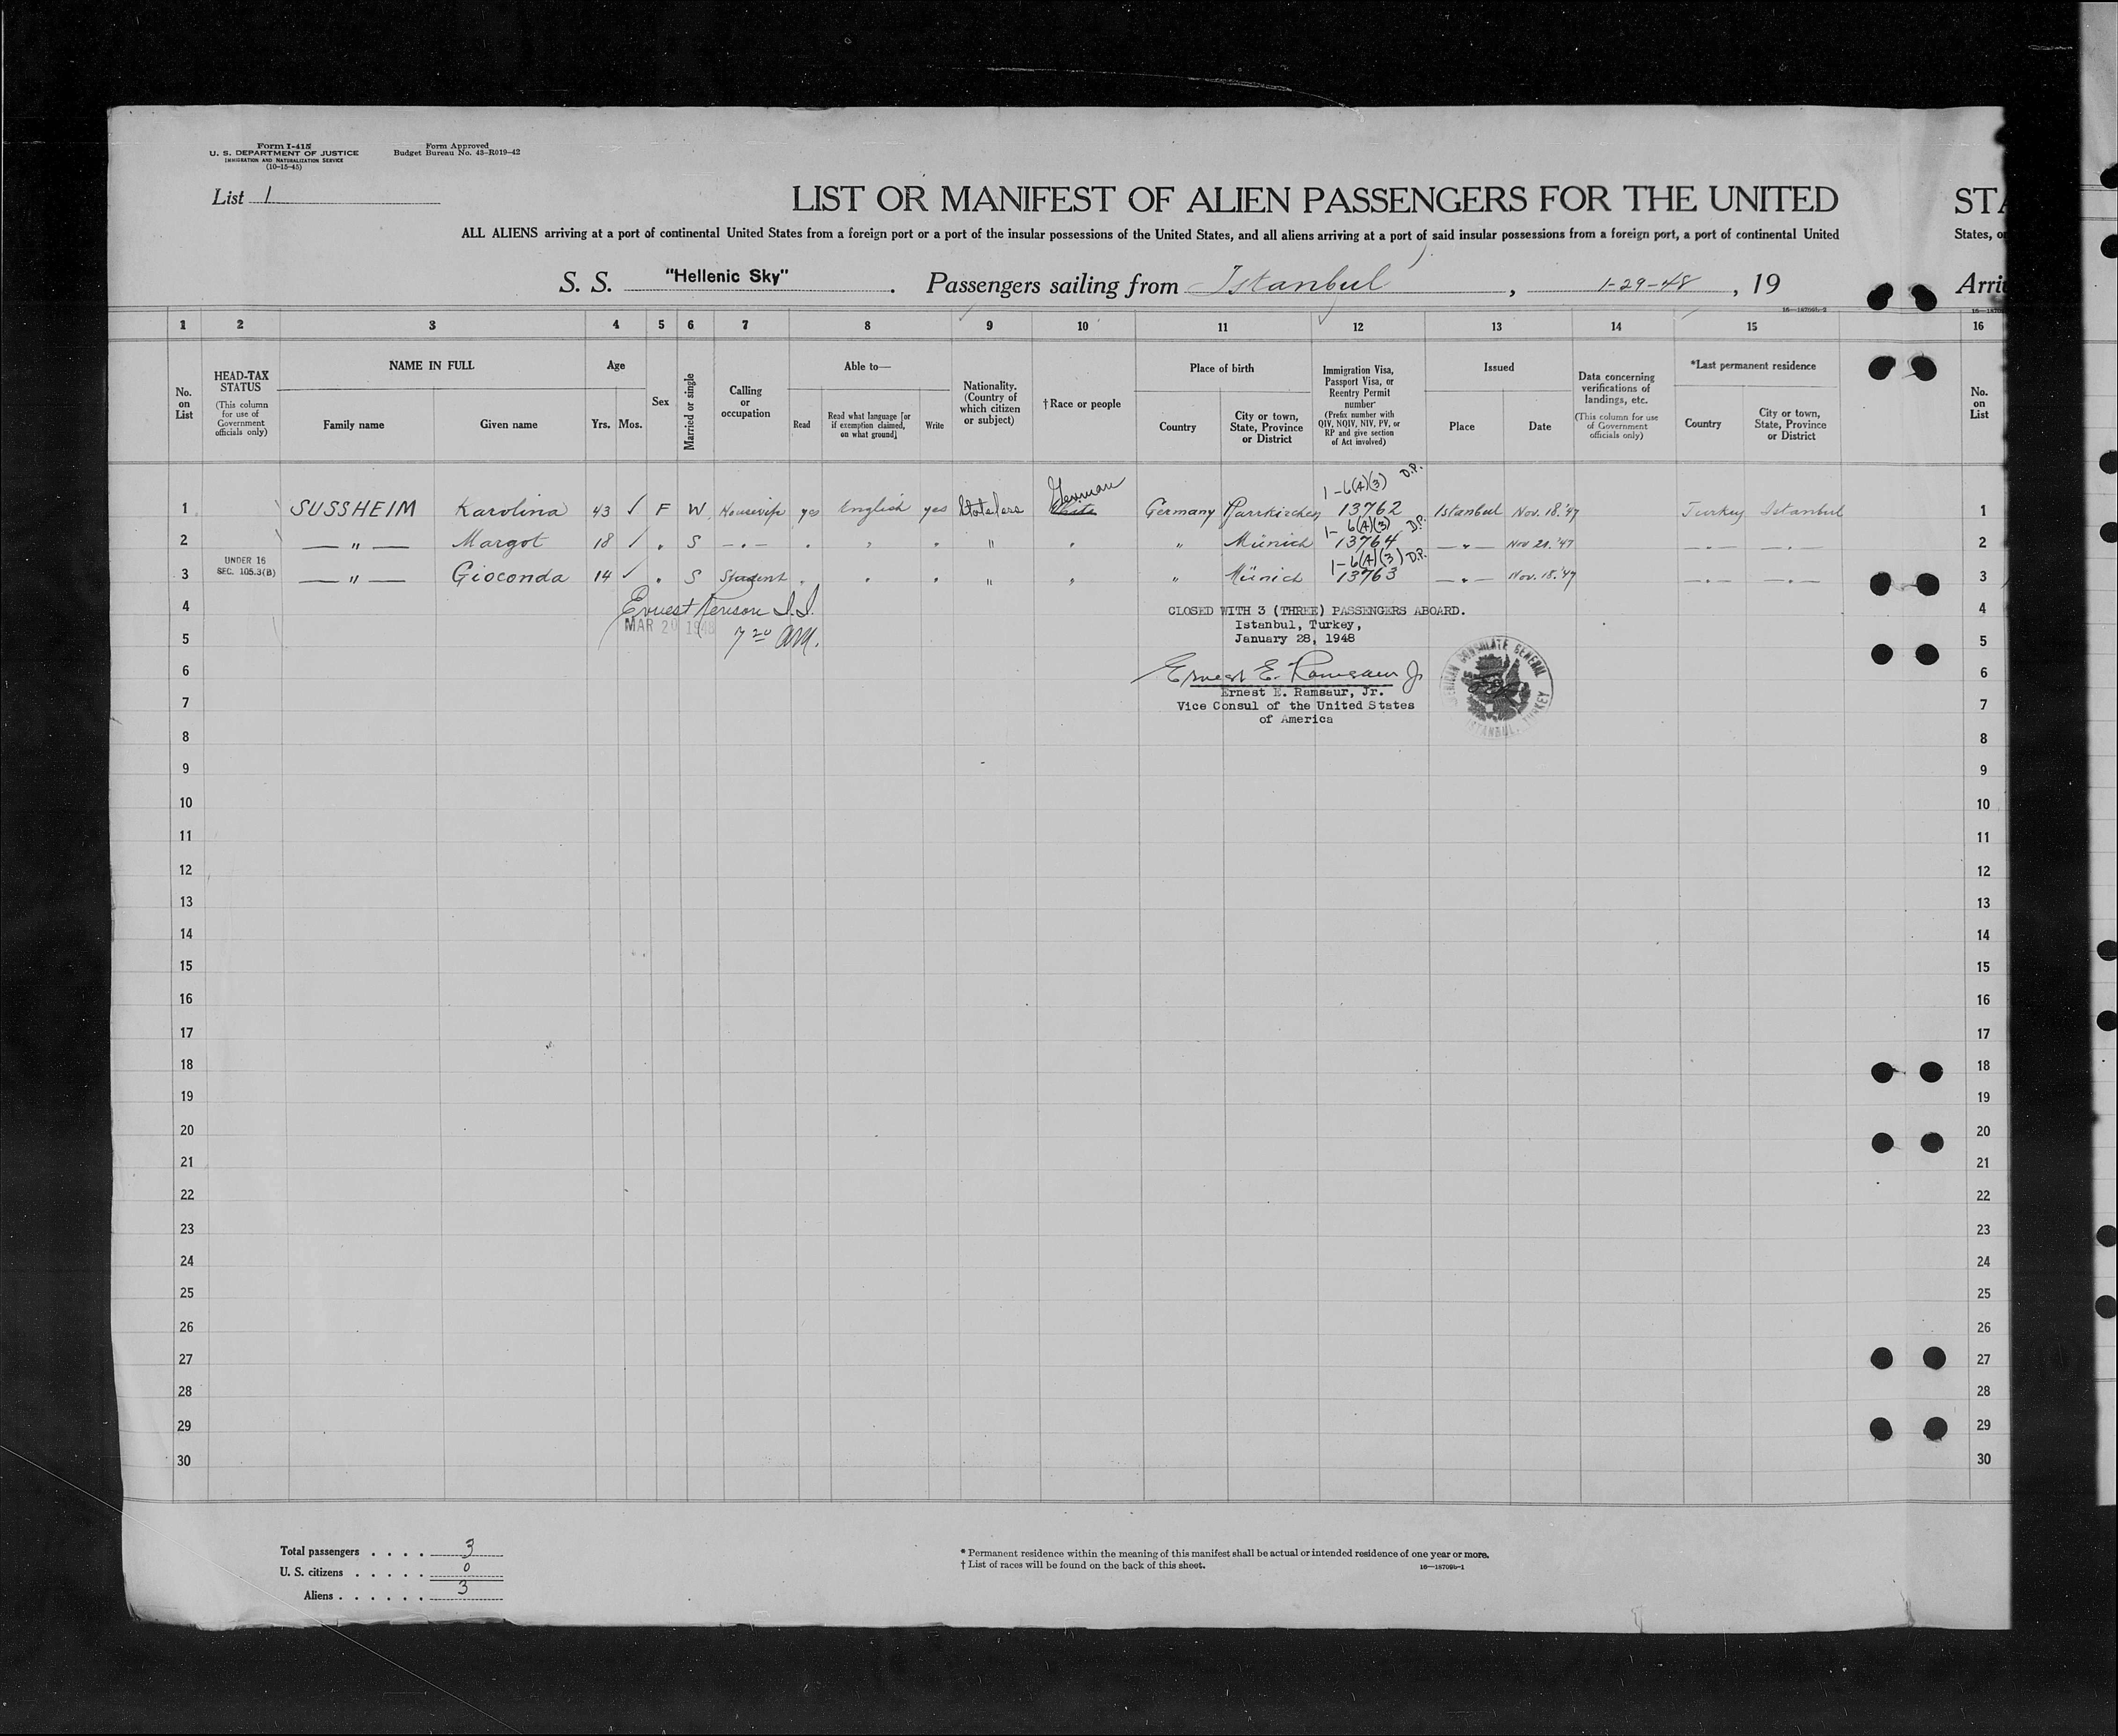 Form I-415
U. S. DEPARTMENT OF JUSTICE
IMMIGRATION AND NATURALIZATION SERVICE
(10-15-45)
Form Approved
Budget Bureau No. 43-R019-42
List 1
LIST OR MANIFEST OF ALIEN PASSENGERS FOR THE UNITED
STA
ALL ALIENS arriving at a port of continental United States from a foreign port or a port of the insular possessions of the United States, and all aliens arriving at a port of said insular possessions from a foreign port, a port of continental United
States, o
S. S. "Hellenic Sky". Passengers sailing from Istanbul, 1-29-48, 19
Arri
16—18709b-2
1 2 3 4 5 6 7 8 9 10 11 12 13 14 15 16
No. on List
HEAD-TAX STATUS
(This column for use of Government officials only)
NAME IN FULL
Family name
Given name
Age
Yrs. Mos.
Sex
Married or single
Calling or occupation
Able to—
Read
Read what language [or if exemption claimed, on what ground]
Write
Nationality. (Country of which citizen or subject)
†Race or people
Place of birth
Country
City or town, State, Province or District
Immigration Visa, Passport Visa, or Reentry Permit number
(Prefix number with QIV, NQIV, NIV, PV, or RP and give section of Act involved)
Issued
Place
Date
Data concerning verifications of landings, etc.
(This column for use of Government officials only)
*Last permanent residence
Country
City or town, State, Province or District
No. on List
German
1-6(A)(3) D.P.
1 SUSSHEIM Karolina 43 ✓ F W Housewife yes English yes Stateless Germany Pfarrkirchen 13762 Istanbul Nov. 18. '47 Turkey Istanbul 1
1-6(A)(3) D.P.
2 — " — Margot 18 ✓ " S — " — " " " " " " Münich 13764 — " — Nov 21. '47 — " — — " — 2
UNDER 16
SEC. 105.3(B)
1-6(A)(3) D.P.
3 — " — Gioconda 14 ✓ " S Student " " " " " " Münich 13763 — " — Nov. 18. '47 — " — — " — 3
4 Ernest I.I. CLOSED WITH 3 (THREE) PASSENGERS ABOARD. 4
MAR 20 1948 7 20 AM.
Istanbul, Turkey,
5 January 28, 1948 5
6 Ernest E. Ramsaur Jr 6
Ernest E. Ramsaur, Jr.
7 Vice Consul of the United States 7
of America
AMERICAN CONSULATE GENERAL
ISTANBUL, TURKEY
8 8
9 9
10 10
11 11
12 12
13 13
14 14
15 15
16 16
17 17
18 18
19 19
20 20
21 21
22 22
23 23
24 24
25 25
26 26
27 27
28 28
29 29
30 30
Total passengers . . . . 3
U. S. citizens . . . . . 0
Aliens . . . . . . 3
* Permanent residence within the meaning of this manifest shall be actual or intended residence of one year or more.
† List of races will be found on the back of this sheet.
16—18709b-1